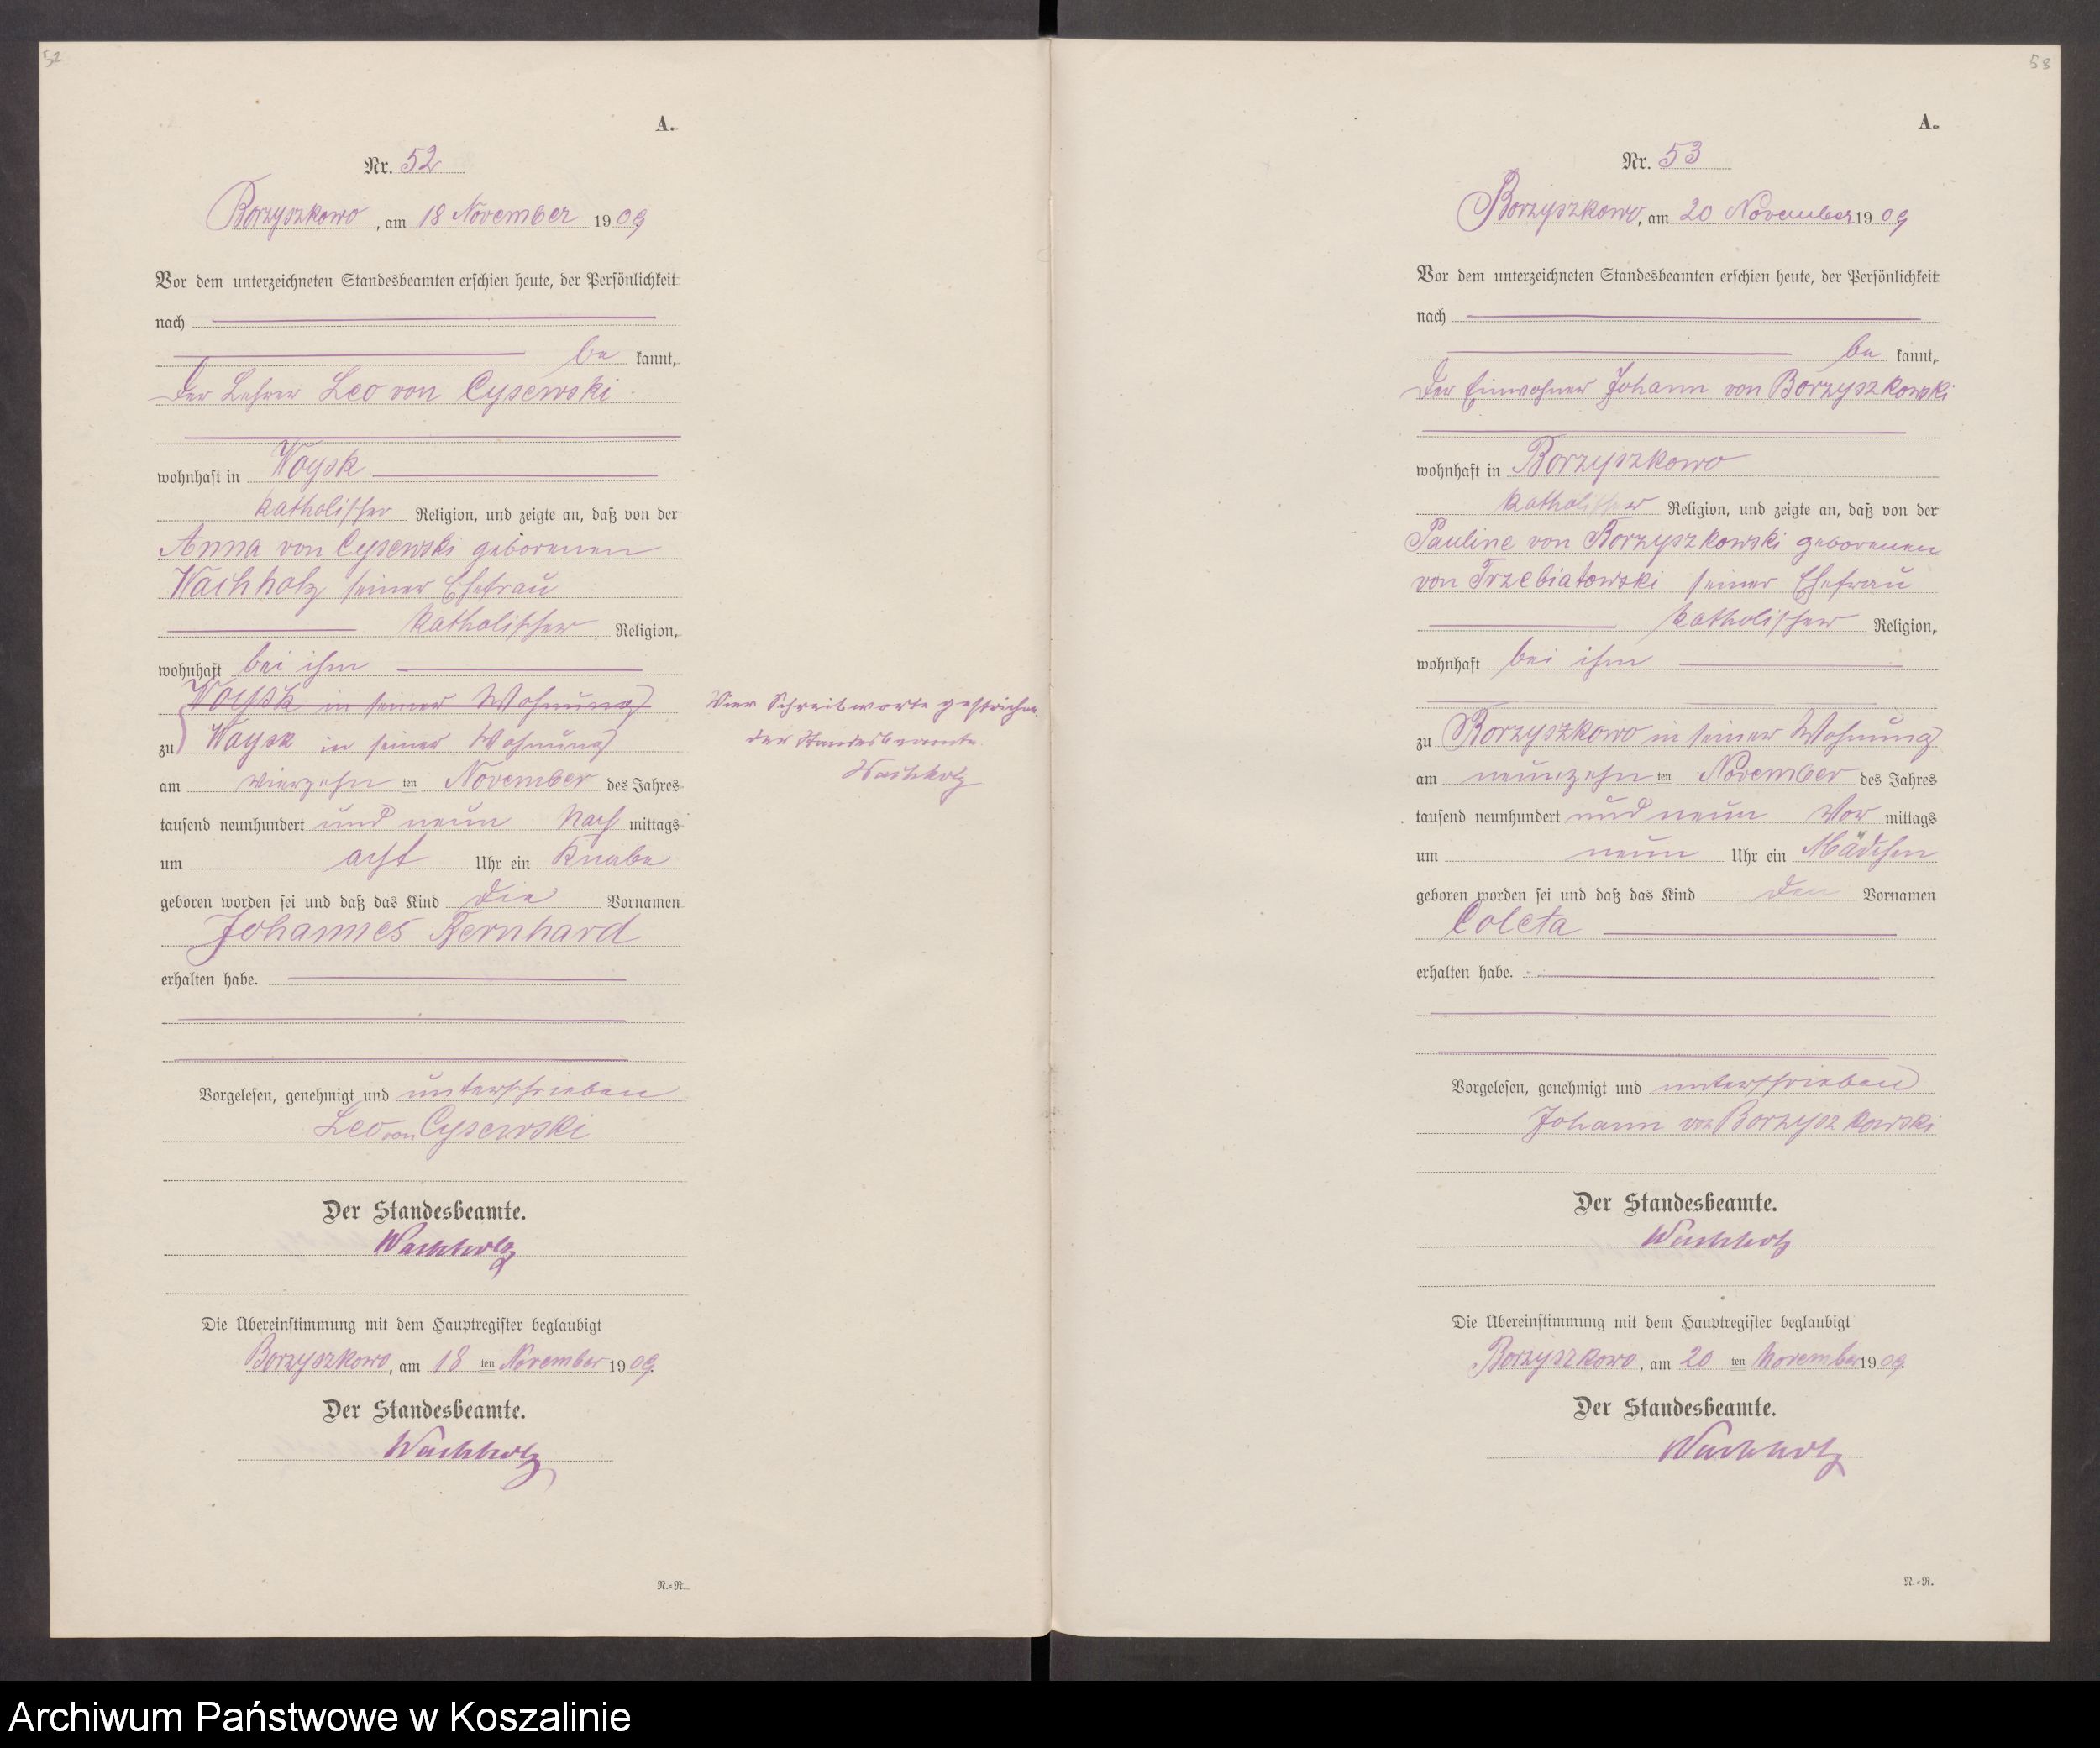 52
A.
Nr. 52
Borzyszkowo, am 18 November 1909
Vor dem unterzeichneten Standesbeamten erschien heute, der Persönlichkeit
nach
be kannt,
Der Lehrer Leo von Cysewski
wohnhaft in Woysk
katholischer Religion, und zeigte an, daß von der
Anna von Cysewski geborenen
Wachholz seiner Ehefrau
katholischer Religion,
wohnhaft bei ihm
Woysk in seiner Wohnung
zu Woysk in seiner Wohnung
am vierzehn ten November des Jahres
tausend neunhundert und neun Nach mittags
um acht Uhr ein Knabe
geboren worden sei und daß das Kind die Vornamen
Johannes Bernhard
erhalten habe.
Vorgelesen, genehmigt und unterschrieben
Leo von Cysewski
Der Standesbeamte.
Wachholz
Die Übereinstimmung mit dem Hauptregister beglaubigt
Borzyszkowo, am 18 ten November 1909.
Der Standesbeamte.
Wachholz
N.=R.
Vier Schreibworte gestrichen.
der Standesbeamte
Wachholz
53
A.
Nr. 53
Borzyszkowo, am 20 November 1909
Vor dem unterzeichneten Standesbeamten erschien heute, der Persönlichkeit
nach
be kannt,
Der Einwohner Johann von Borzyszkowski
wohnhaft in Borzyszkowo
katholischer Religion, und zeigte an, daß von der
Pauline von Borzyszkowski geborenen
von Trzebiatowski seiner Ehefrau
katholischer Religion,
wohnhaft bei ihm
zu Borzyszkowo in seiner Wohnung
am neunzehn ten November des Jahres
tausend neunhundert und neun Vor mittags
um neun Uhr ein Mädchen
geboren worden sei und daß das Kind den Vornamen
Coleta
erhalten habe.
Vorgelesen, genehmigt und unterschrieben
Johann von Borzyszkowski
Der Standesbeamte.
Wachholz
Die Übereinstimmung mit dem Hauptregister beglaubigt
Borzyszkowo, am 20 ten November 1909.
Der Standesbeamte.
Wachholz
N.=R.
Archiwum Państwowe w Koszalinie